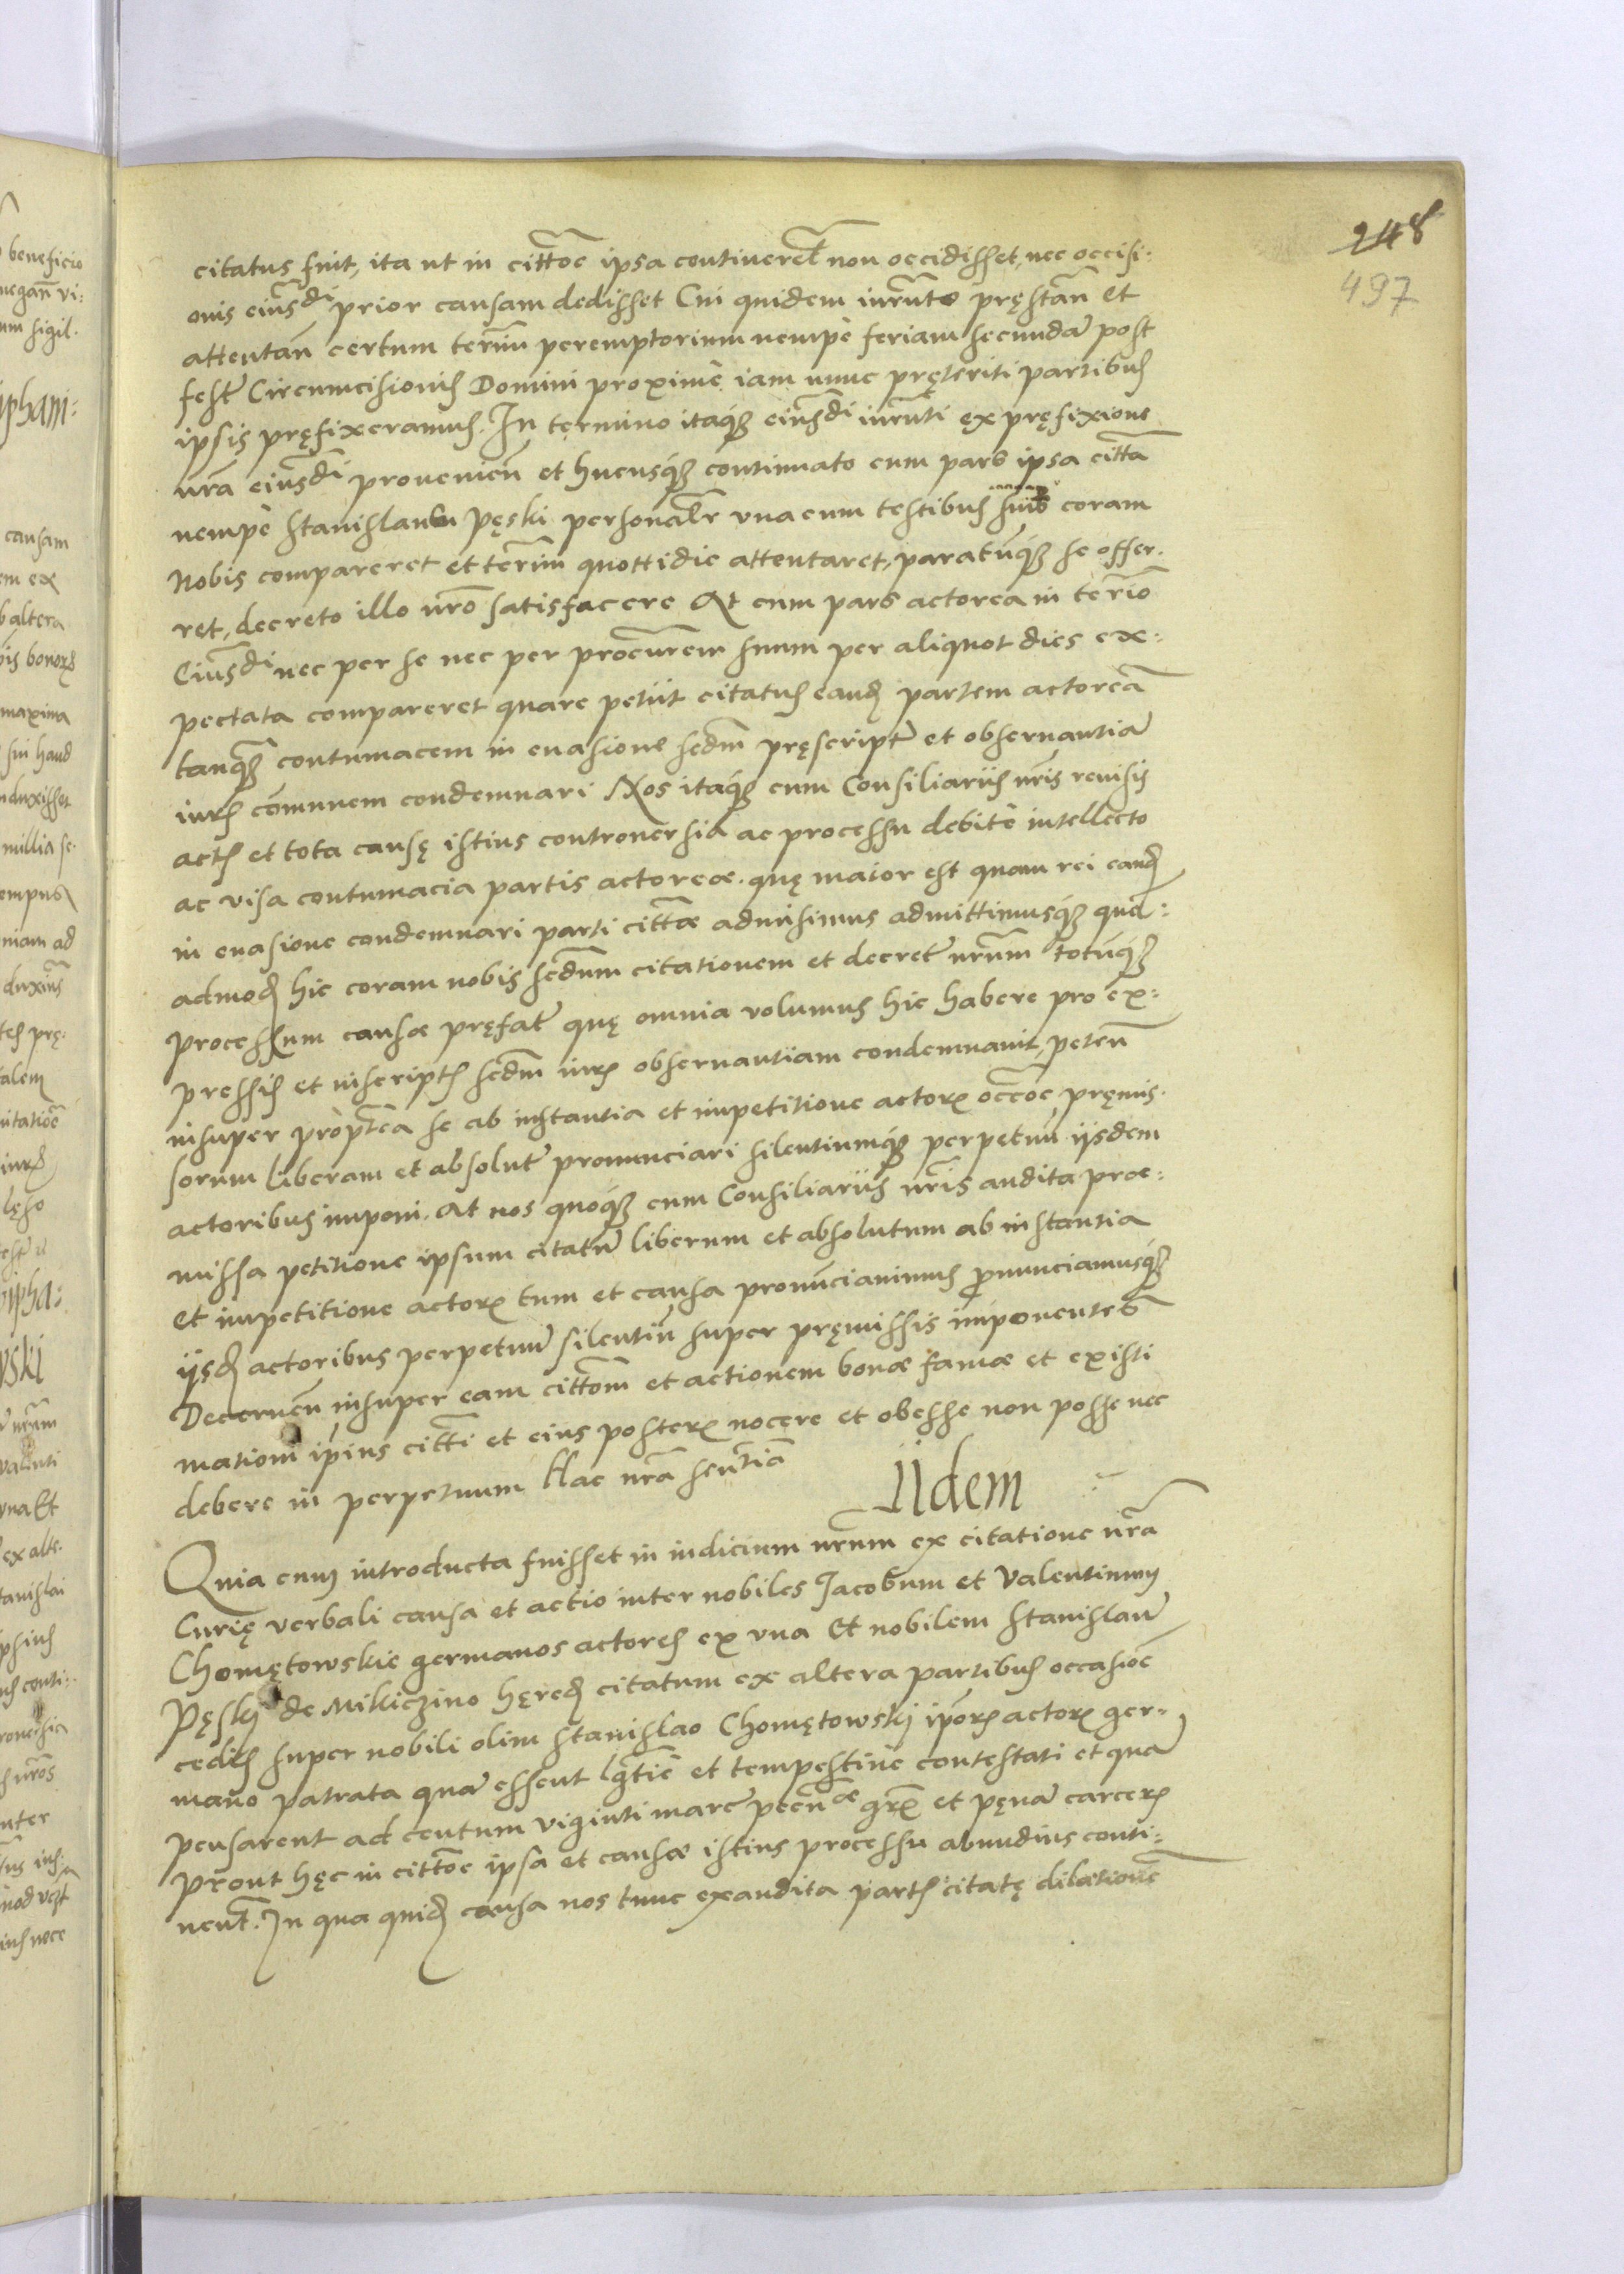 248
497
citatus fuit, ita ut in cittōe ipsa contineret̄ non occidisset, nec occisi:
onis eiusdi prior causam dedisset Cui quidem iurānto pręstan̄ et
attentan̄ certum termī peremptorium nempe feriam secundā post
fest̄ Circumcisionis Domini proxime iam nunc pręteriti partibus
ipsis pręfixeramus. In termino itaq₃ eiusdi iurānti ex pręfixione
nrā eiusdi provenien̄ et hucusq₃ continuato cum pars ipsa citta
nempe Stanislaus Pęski personalr̄ una cum testibus suis coram
Nobis compareret et termī quottidie attentaret, paratūq₃ se offer:
ret, decreto illo nrō satisfacere At cum pars actorea in termīo
Eiusdi nec per se nec per procurem̄ suum per aliquot dies ex:
pectata compareret quare petiit citatus eand̄ partem actoreā
tanq₃ contumacem in evasione sedm̄ pręscript̄ et observantiā
iurs com̄unem condemnari Nos itaq₃ cum Consiliariis nrīs revisis
actis et tota causę istius controversia ac processu debite intellecto
ac visa contumacia partis actoreæ. quę maior est quam rei eand̄
in evasione condemnari parti cittæ admisimus admittimusq₃ quē:
admod̄ hic coram nobis sedūm citationem et decret̄ nrūm totūq₃
processum causæ pręfat̄ quę omnia volumus hic habere pro ex:
pressis et inscriptis sedm̄ iurs observantiam condemnavit, peten̄
insuper proptēa se ab instantia et impetitione actorꝝ occōe pręmis:
sorum liberam et absolut̄ pronunciari silentiumq₃ perpetuū iisdem
actoribus imponi. At nos quoq₃ cum Consiliariis nrīs audita præ:
missa petitione ipsum citatū liberum et absolutum ab instantia
et impetitione actorꝝ tum et causa pronunciavimus pronunciamusq₃
iisd̄ actoribus perpetuū silentiū super pręmissis imponentes
Decernen̄ insuper eam cittōm et actionem bonæ famæ et existi
mationi ipīus citti et eius posterꝝ nocere et obesse non posse nec
debere in perpetuum Hac nrā sentīa
Iidem
Quia cum introducta fuisset in iudicium nrūm ex citatione nrā
Curię verbali causa et actio inter nobiles Jacobum et Valentinum
Chomętowskie germanos actores ex una Et nobilem Stanislaū
Pęski de Mikiczino hęred̄ citatum ex altera partibus occasiōe
cedis super nobili olim Stanislao Chomętowski ipōrꝝ actorꝝ ger:
mano patrata quā essent lgtīe et tempestive contestati et quā
pensarent ad centum viginti marc̄ pecūæ grꝝ et pęnā carceris
Prout hęc in cittōe ipsa et causæ istius processu abundius conti:
nent̄. In qua quid̄ causa nos tunc exaudita partis citatę dilationē